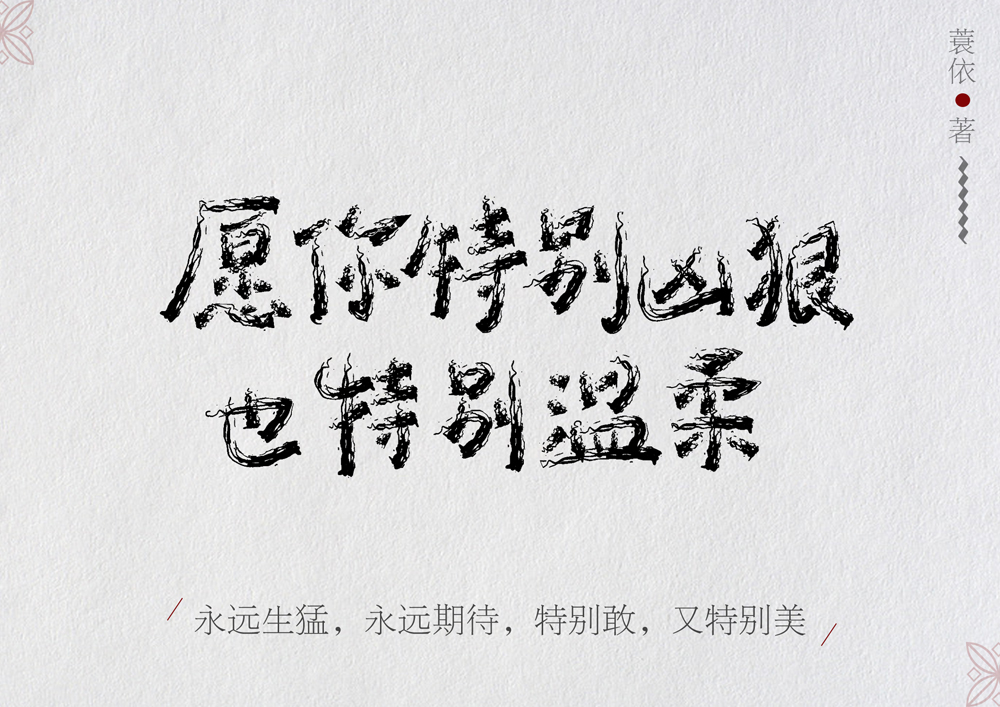 愿你特别凶狠
也特别温柔
永远生猛，永远期待，特别敢，又特别美
蓑依●著